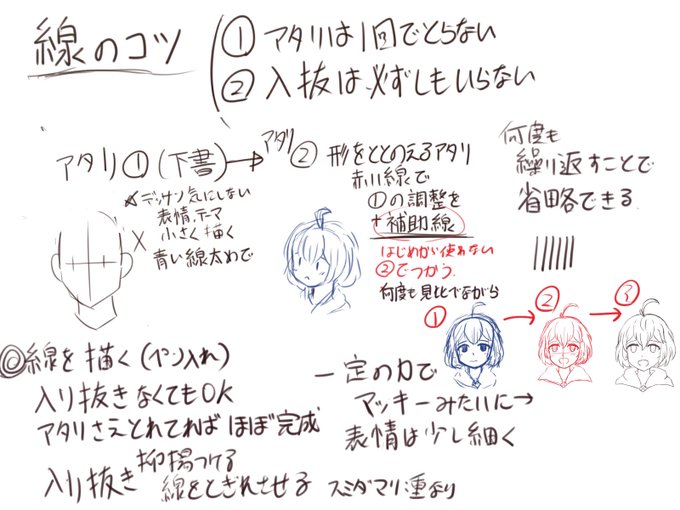 線のコツ
① アタリは1回でとらない
② 入抜は必ずしもいらない
アタリ①(下書)→
アタリ② 形をととのえるアタリ
赤い線で
①の調整を
+補助線
はじめから使わない
②でつかう
何度も見比べながら
何度も
繰り返すことで
省略できる
デッサン気にしない
表情、テーマ
小さく描く
青い線太めで
① → ② → ③
◎線を描く(ペン入れ)
入り抜きなくてもOK
アタリさえとれてれば ほぼ完成
入り抜き 抑揚つける
線をとぎれさせる スミダマリ 重なり
一定の力で
マッキーみたいに→
表情は少し細く